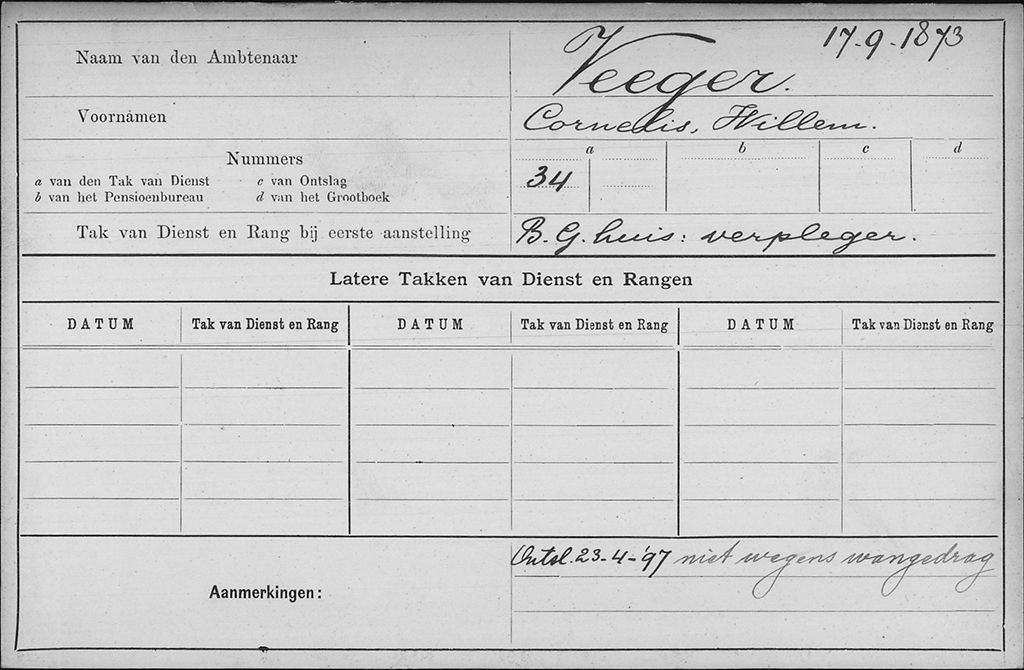 17-9-1873
Naam van den Ambtenaar Veeger.
Voornamen Cornelis, Willem.
Nummers a b c d
a van den Tak van Dienst c van Ontslag 34
b van het Pensioenbureau d van het Grootboek
Tak van Dienst en Rang bij eerste aanstelling B.G.huis: verpleger.
Latere Takken van Dienst en Rangen
DATUM Tak van Dienst en Rang DATUM Tak van Dienst en Rang DATUM Tak van Dienst en Rang
Ontsl. 23-4-'97 niet wegens wangedrag
Aanmerkingen: